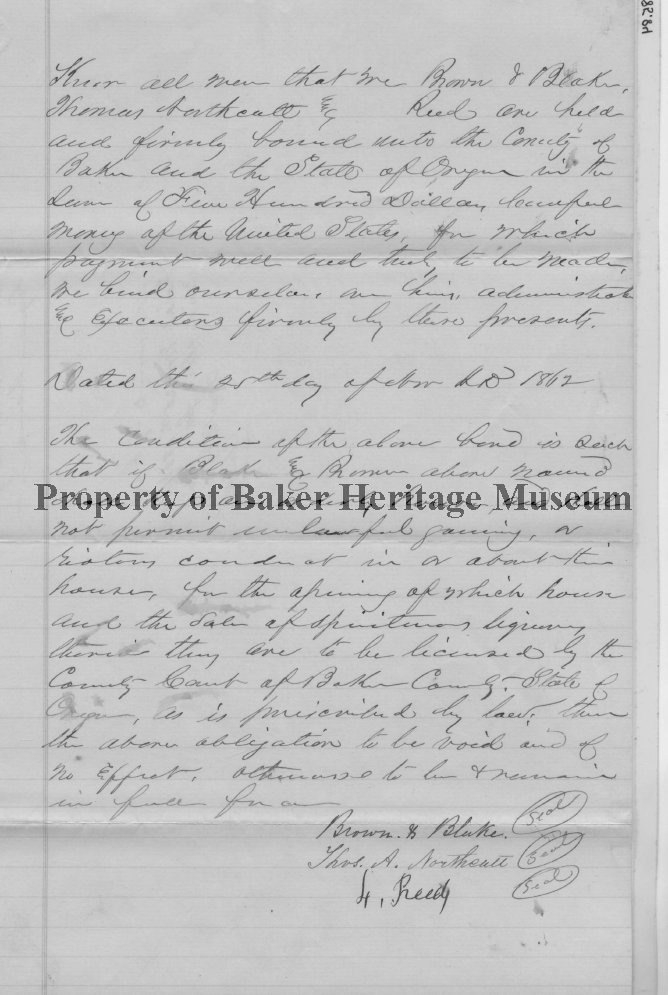 Know all men that we Brown & Blake,
Thomas Northcutt & Reed are held
and firmly bound unto the County of
Baker and the State of Oregon in the
Sum of Five Hundred Dollars, lawful
money of the United States, for which
payment well and truly to be made,
we bind ourselves, our heirs, administrators
& Executors firmly by these presents.
Dated this 25th day of Nov AD 1862
The Condition of the above bond is such
that if Blake & Brown above named
Property of Baker Heritage Museum
not permit unlawful gaming, or
riotous conduct in or about this
house, for the opening of which house
and the sale of spirituous liquors
therein they are to be licensed by the
County Court of Baker County State of
Oregon, as is prescribed by law, then
the above obligation to be void and of
no Effect, otherwise to be & remain
in full force
Brown & Blake. Seal
Thos. A. Northcutt Seal
Reed Seal